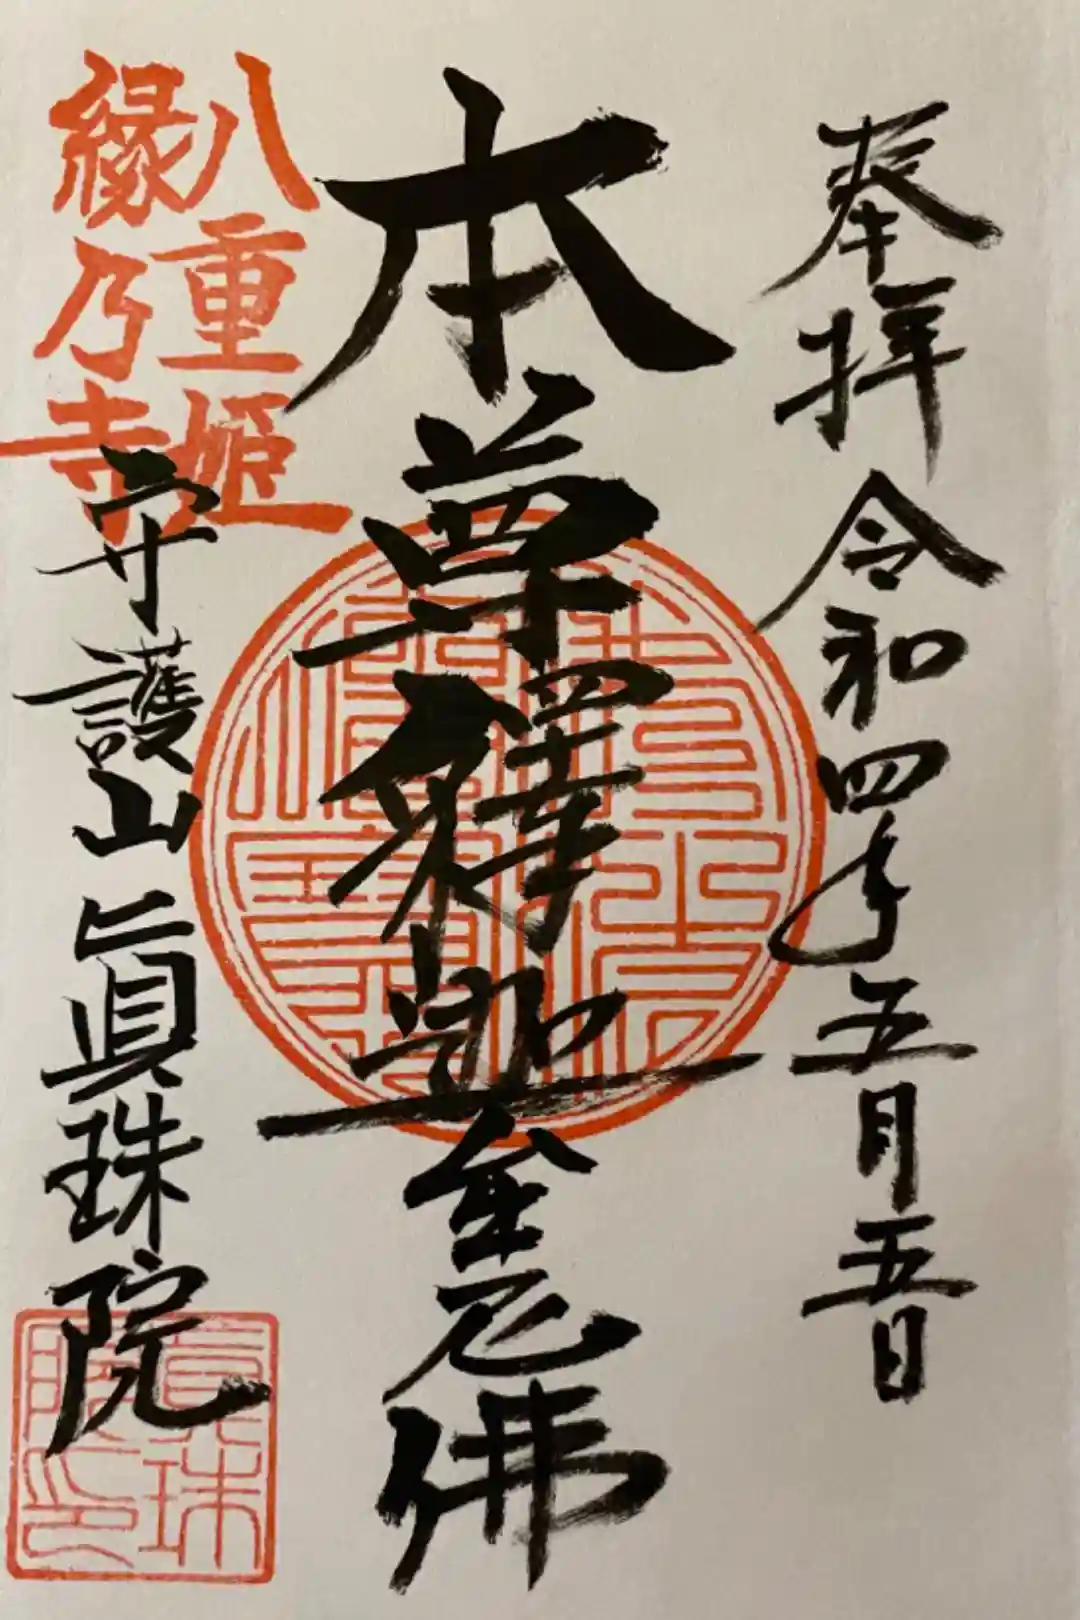 奉拝 令和四年五月五日
本尊釋迦牟尼佛
佛法
僧寶
八重姫
縁乃寺
守護山眞珠院
眞珠
院印